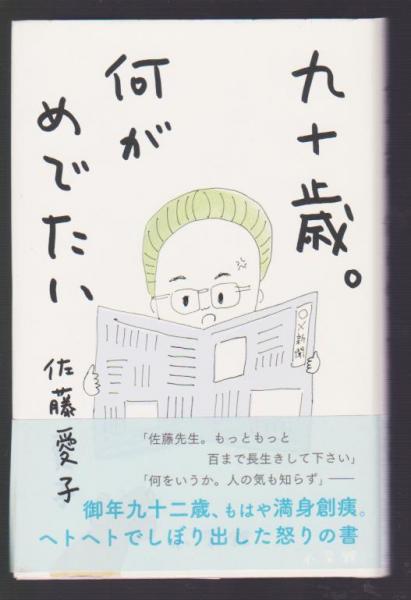 九十歳。
何が
めでたい
佐藤愛子
○×新聞
「佐藤先生。もっともっと
百まで長生きして下さい」
「何をいうか。人の気も知らず」――
御年九十二歳、もはや満身創痍。
ヘトヘトでしぼり出した怒りの書
小学館